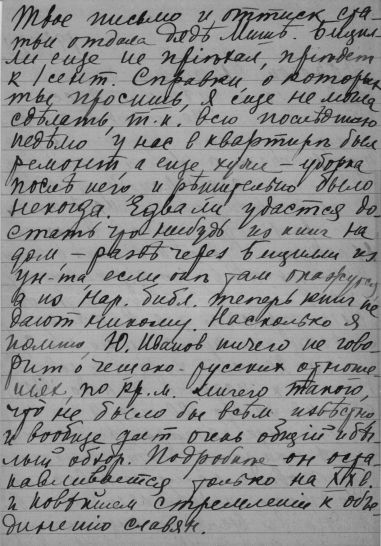 Твое письмо и оттиск ста-
тьи отдала Люд. Мих. Бицил-
ли еще не пріѣхал, пріѣдет
к 1 сент. Справки о которых
ты просишь, я еще не могла
сдѣлать, т.к. всю послѣднюю
недѣлю у нас в квартирѣ был
ремонт, а еще хуже – уборка
послѣ него и рѣшительно было
некогда. Едва ли удастся до-
стать что нибудь из книг на
дом – развѣ через Бицилли из
ун-та если онѣ там окажутся
а из Нар. библ. теперь книг не
дают никому. Насколько я
помню Ю. Иванов ничего не гово-
рит о чешско-русских отноше-
ніях, по кр. м. ничего такого,
что не было бы всѣм извѣстно
и вообще дает очень общій и бѣ-
лый обзор. Подробнѣе он оста-
навливается только на XIX в.
и новѣйшем стремленіи к объе-
диненію славян.